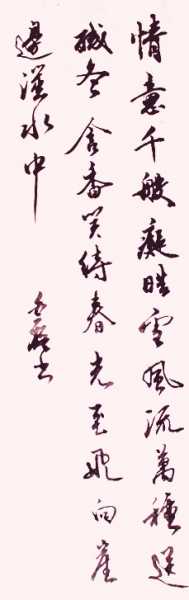 情意千般癡皓雪風流萬種送
殘冬含香笑待春光至飛向崖
邊溪水中
书